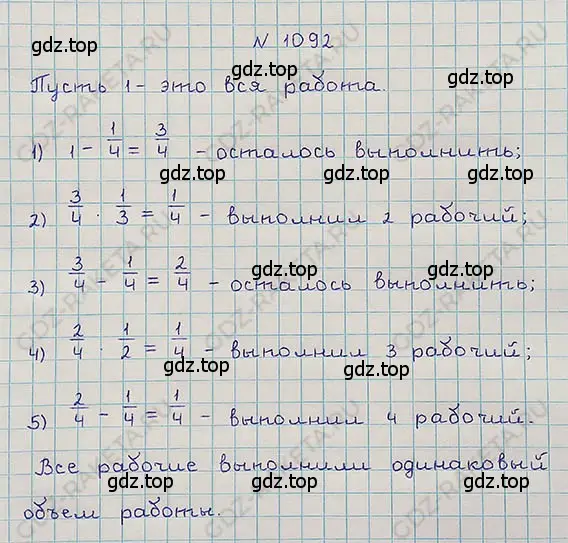 N 1092
gdz.top gdz.top
Пусть 1 - это вся работа.
gdz.top gdz.top
1) 1 - 1/4 = 3/4 - осталось выполнить;
gdz.top gdz.top
2) 3/4 · 1/3 = 1/4 - выполнил 2 рабочий;
gdz.top gdz.top
3) 3/4 - 1/4 = 2/4 - осталось выполнить;
gdz.top gdz.top
4) 2/4 · 1/2 = 1/4 - выполнил 3 рабочий;
gdz.top gdz.top
5) 2/4 - 1/4 = 1/4 - выполнил 4 рабочий.
gdz.top gdz.top
Все рабочие выполнили одинаковый
gdz.top gdz.top
объем работы.
GDZ-RAKETA.RU